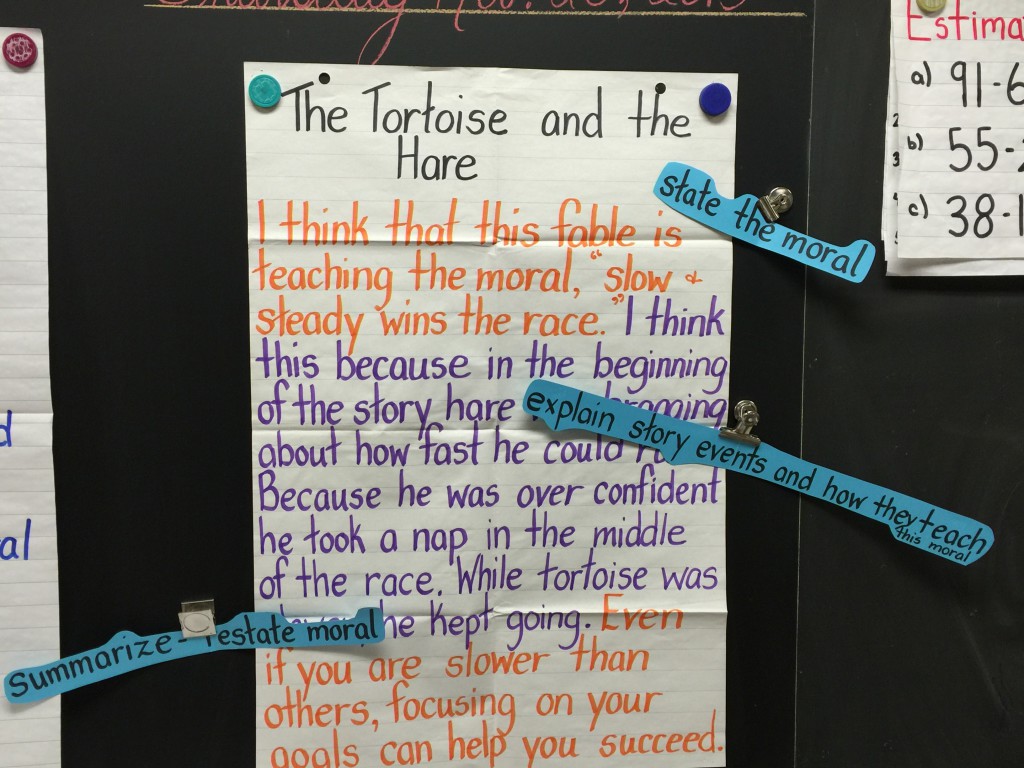 The Tortoise and the
Hare
I think that this fable is
teaching the moral, "slow &
steady wins the race." I think
this because in the beginning
of the story hare bragging
about how fast he could
Because he was over confident
he took a nap in the middle
of the race. While tortoise was
he kept going. Even
if you are slower than
others, focusing on your
goals can help you succeed.
state the moral
explain story events and how they teach
this moral
Summarize - restate moral
Estima
a) 91-6
b) 55-2
c) 38-1
d
al